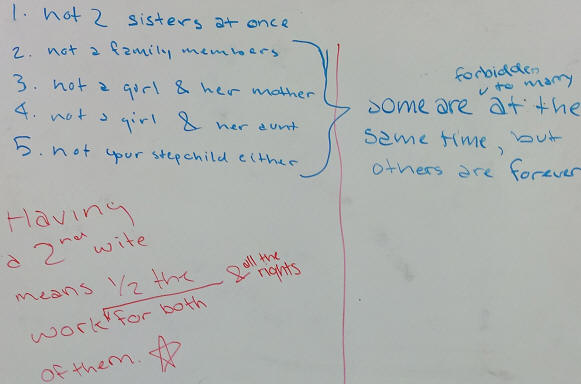 1. not 2 sisters at once
2. not a family members
3. not a girl & her mother
4. not a girl & her aunt
5. not your stepchild either
forbidden
to marry
some are at the
same time, but
others are forever
Having
a 2nd wife
means 1/2 the
work for both & all the rights
of them.